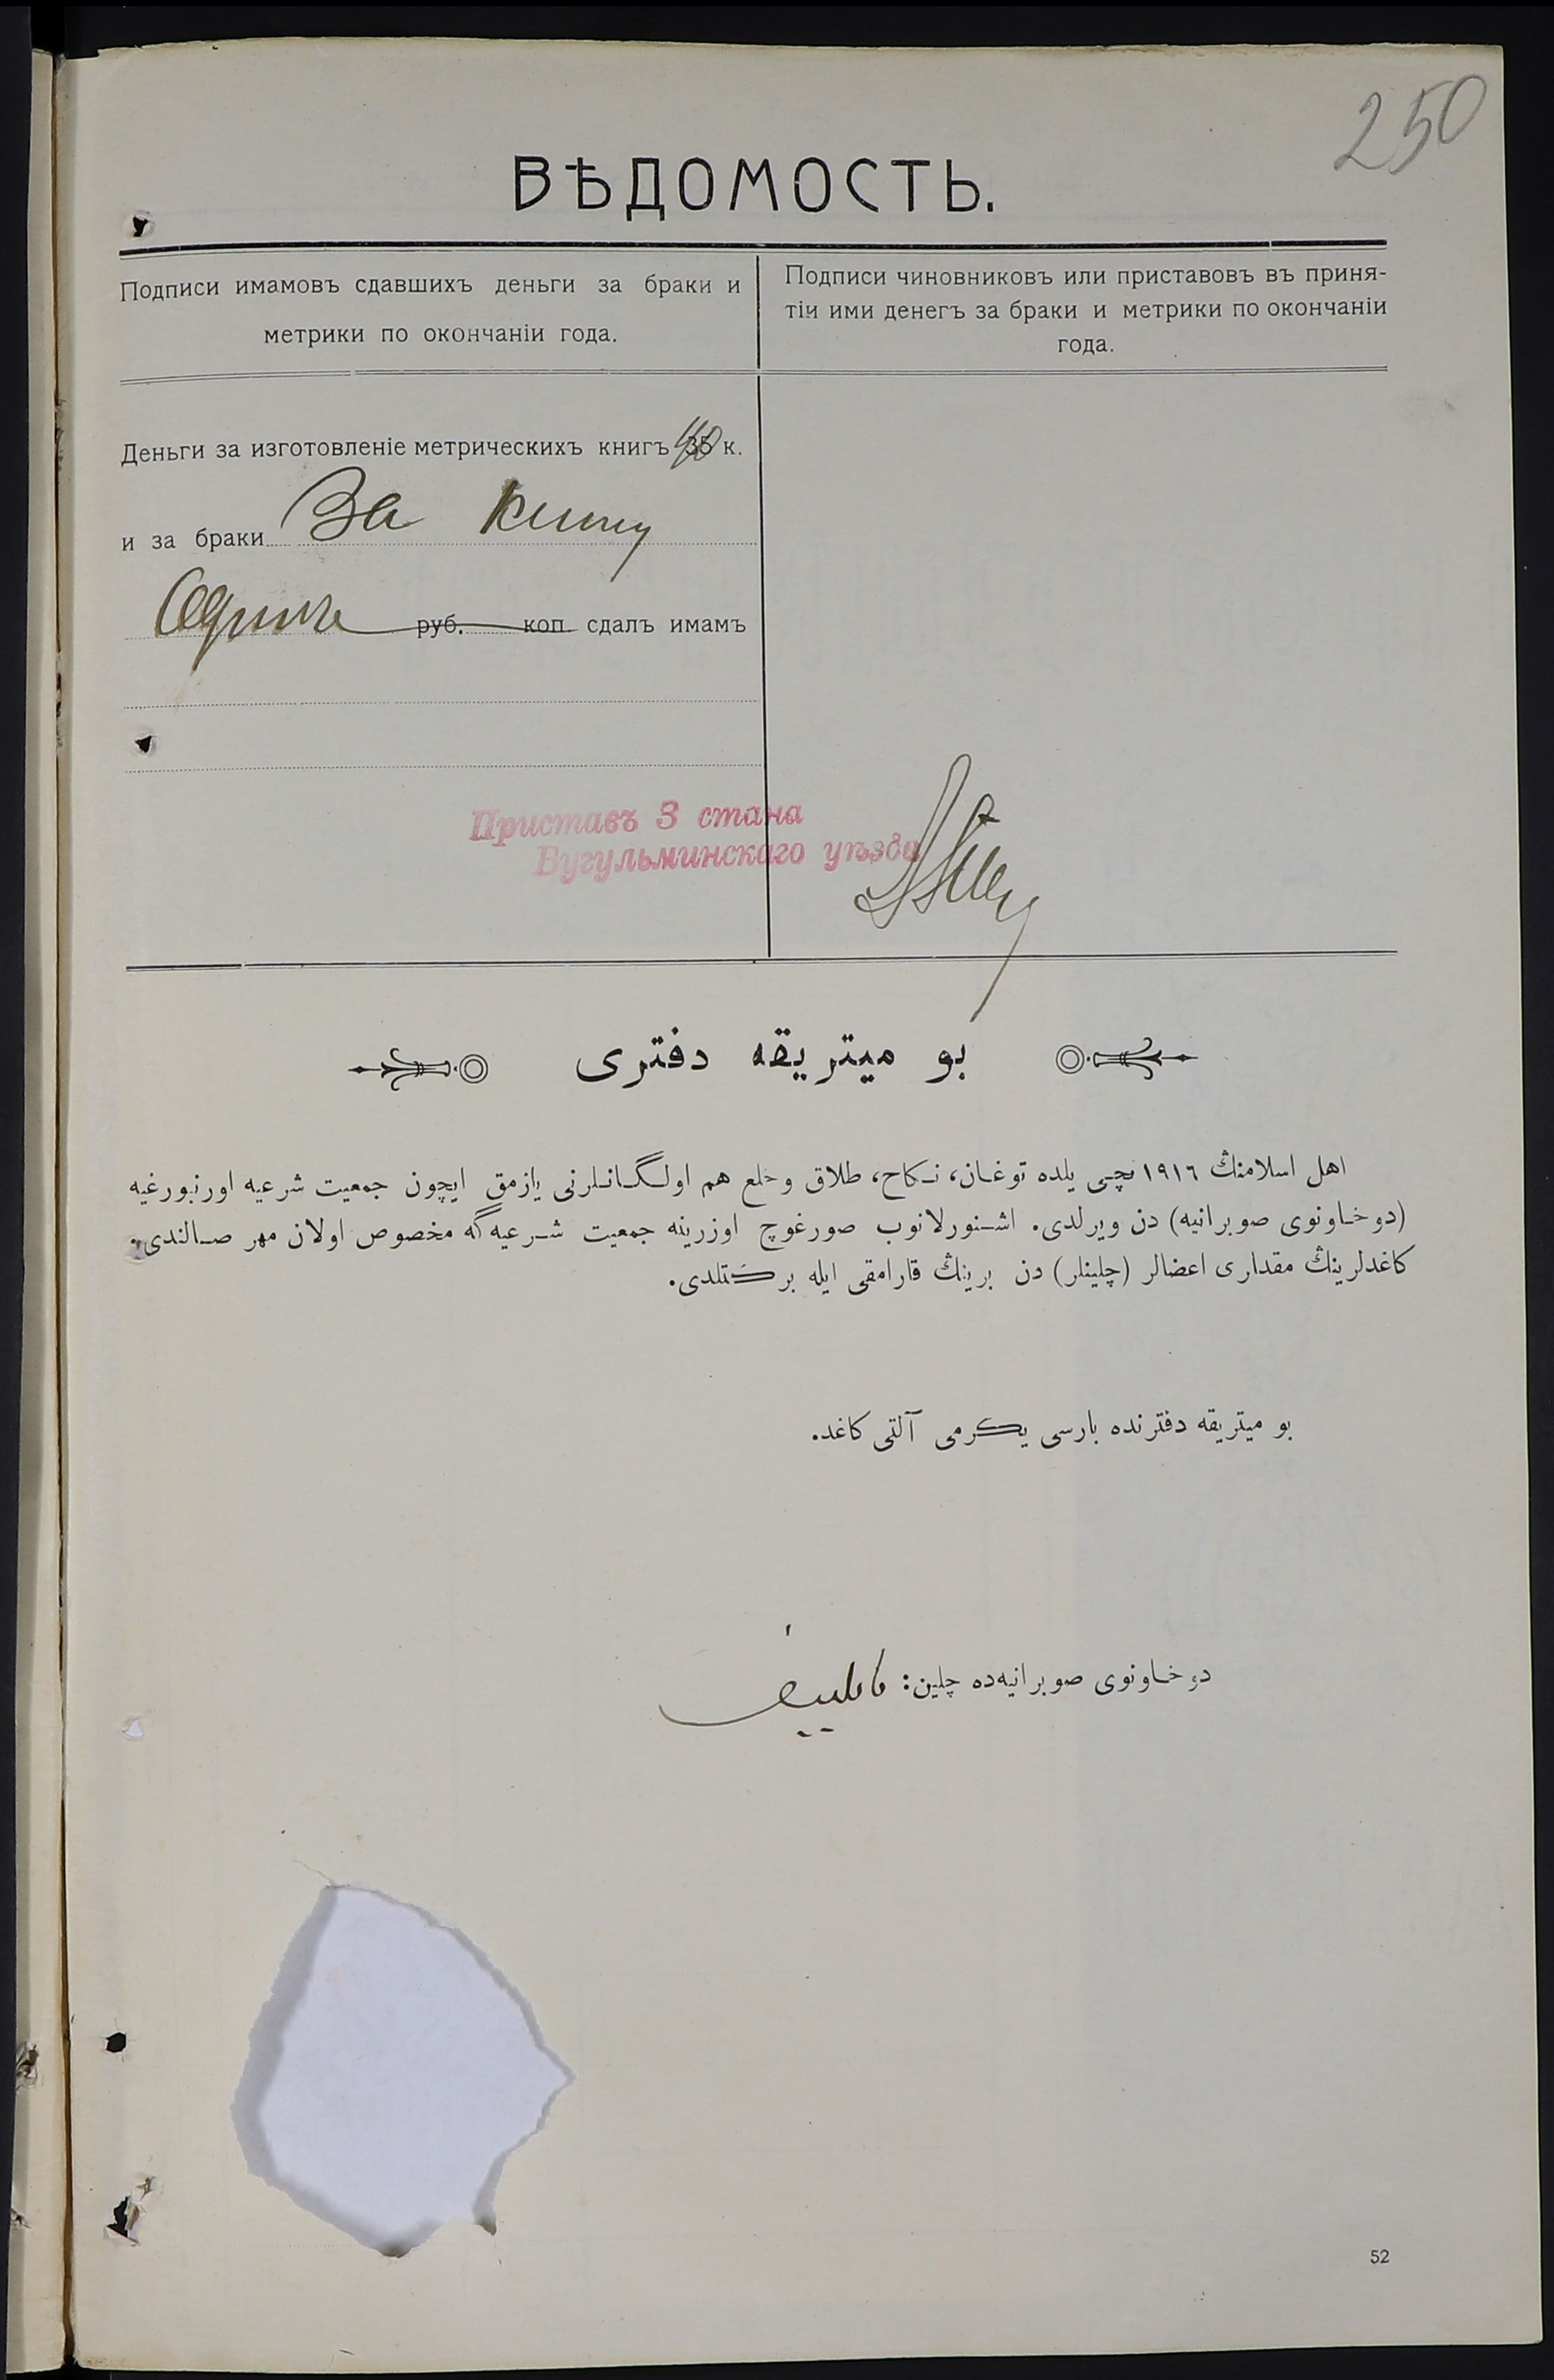 250
ВѢДОМОСТЬ.
Подписи имамовъ сдавшихъ деньги за браки и
метрики по окончаніи года.
Подписи чиновниковъ или приставовъ въ приня-
тіи ими денегъ за браки и метрики по окончаніи
года.
Деньги за изготовленіе метрическихъ книгъ 35 к.
и за браки За книгу
руб. коп сдалъ имамъ
Приставъ 3 стана
Бугульминскаго уѣзда
بو ميتريقه دفترى
اهل اسلامنڭ ١٩١٦ نچى يلده توغان، نكاح، طلاق و خلع هم اولگانلرنى يازمق ايچون جمعيت شرعيه اورنبورغيه
(دوخاونوى صوبرانيه) دن ويرلدى. اشنورلانوب صورغوچ اوزرينه جمعيت شرعيه گه مخصوص اولان مهر صالندى.
كاغدلرينڭ مقدارى اعضالر (چلينلر) دن برينڭ قارامقى ايله بركتلدى.
بو ميتريقه دفترنده بارسى يكرمى آلتى كاغد.
دوخاونوى صوبرانيه ده چلين:
52